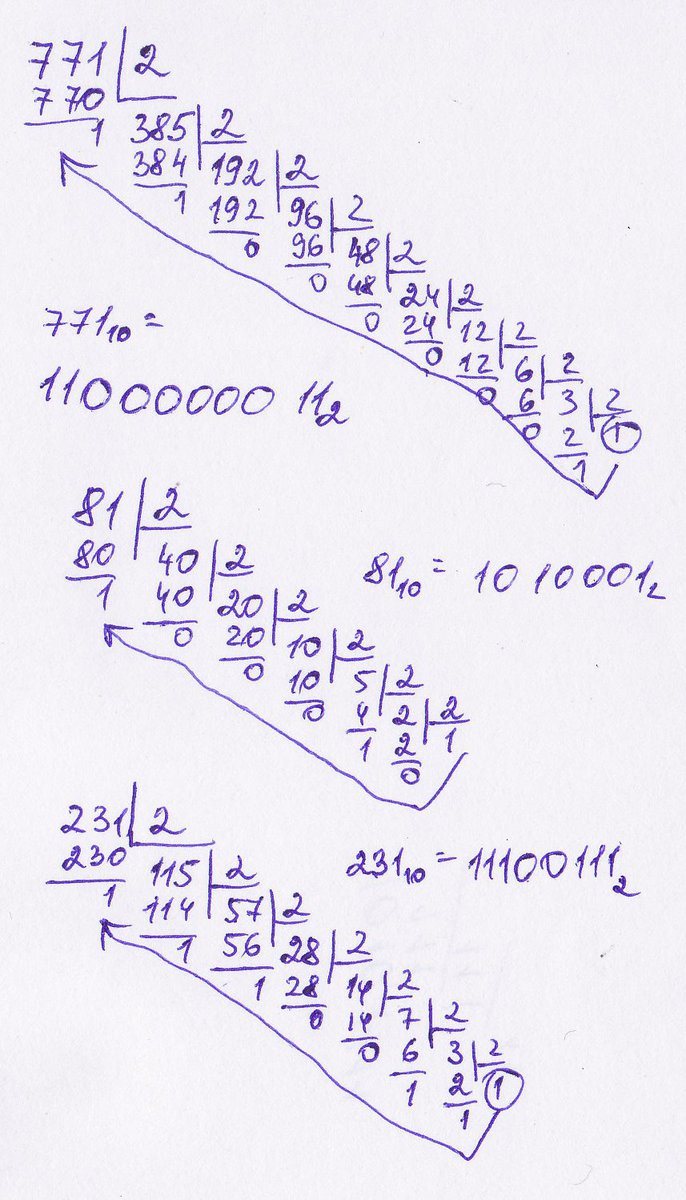 771 2
770 385 2
1 384 192 2
1 192 96 2
0 96 48 2
0 48 24 2
0 24 12 2
0 12 6 2
0 6 3 2
0 2 1
1
771₁₀ =
1100000011₂
81 2
80 40 2
1 40 20 2
0 20 10 2
0 10 5 2
0 4 2 2
1 2 1
0
81₁₀ = 1010001₂
231 2
230 115 2
1 114 57 2
1 56 28 2
1 28 14 2
0 14 7 2
0 6 3 2
1 2 1
1
231₁₀ = 11100111₂